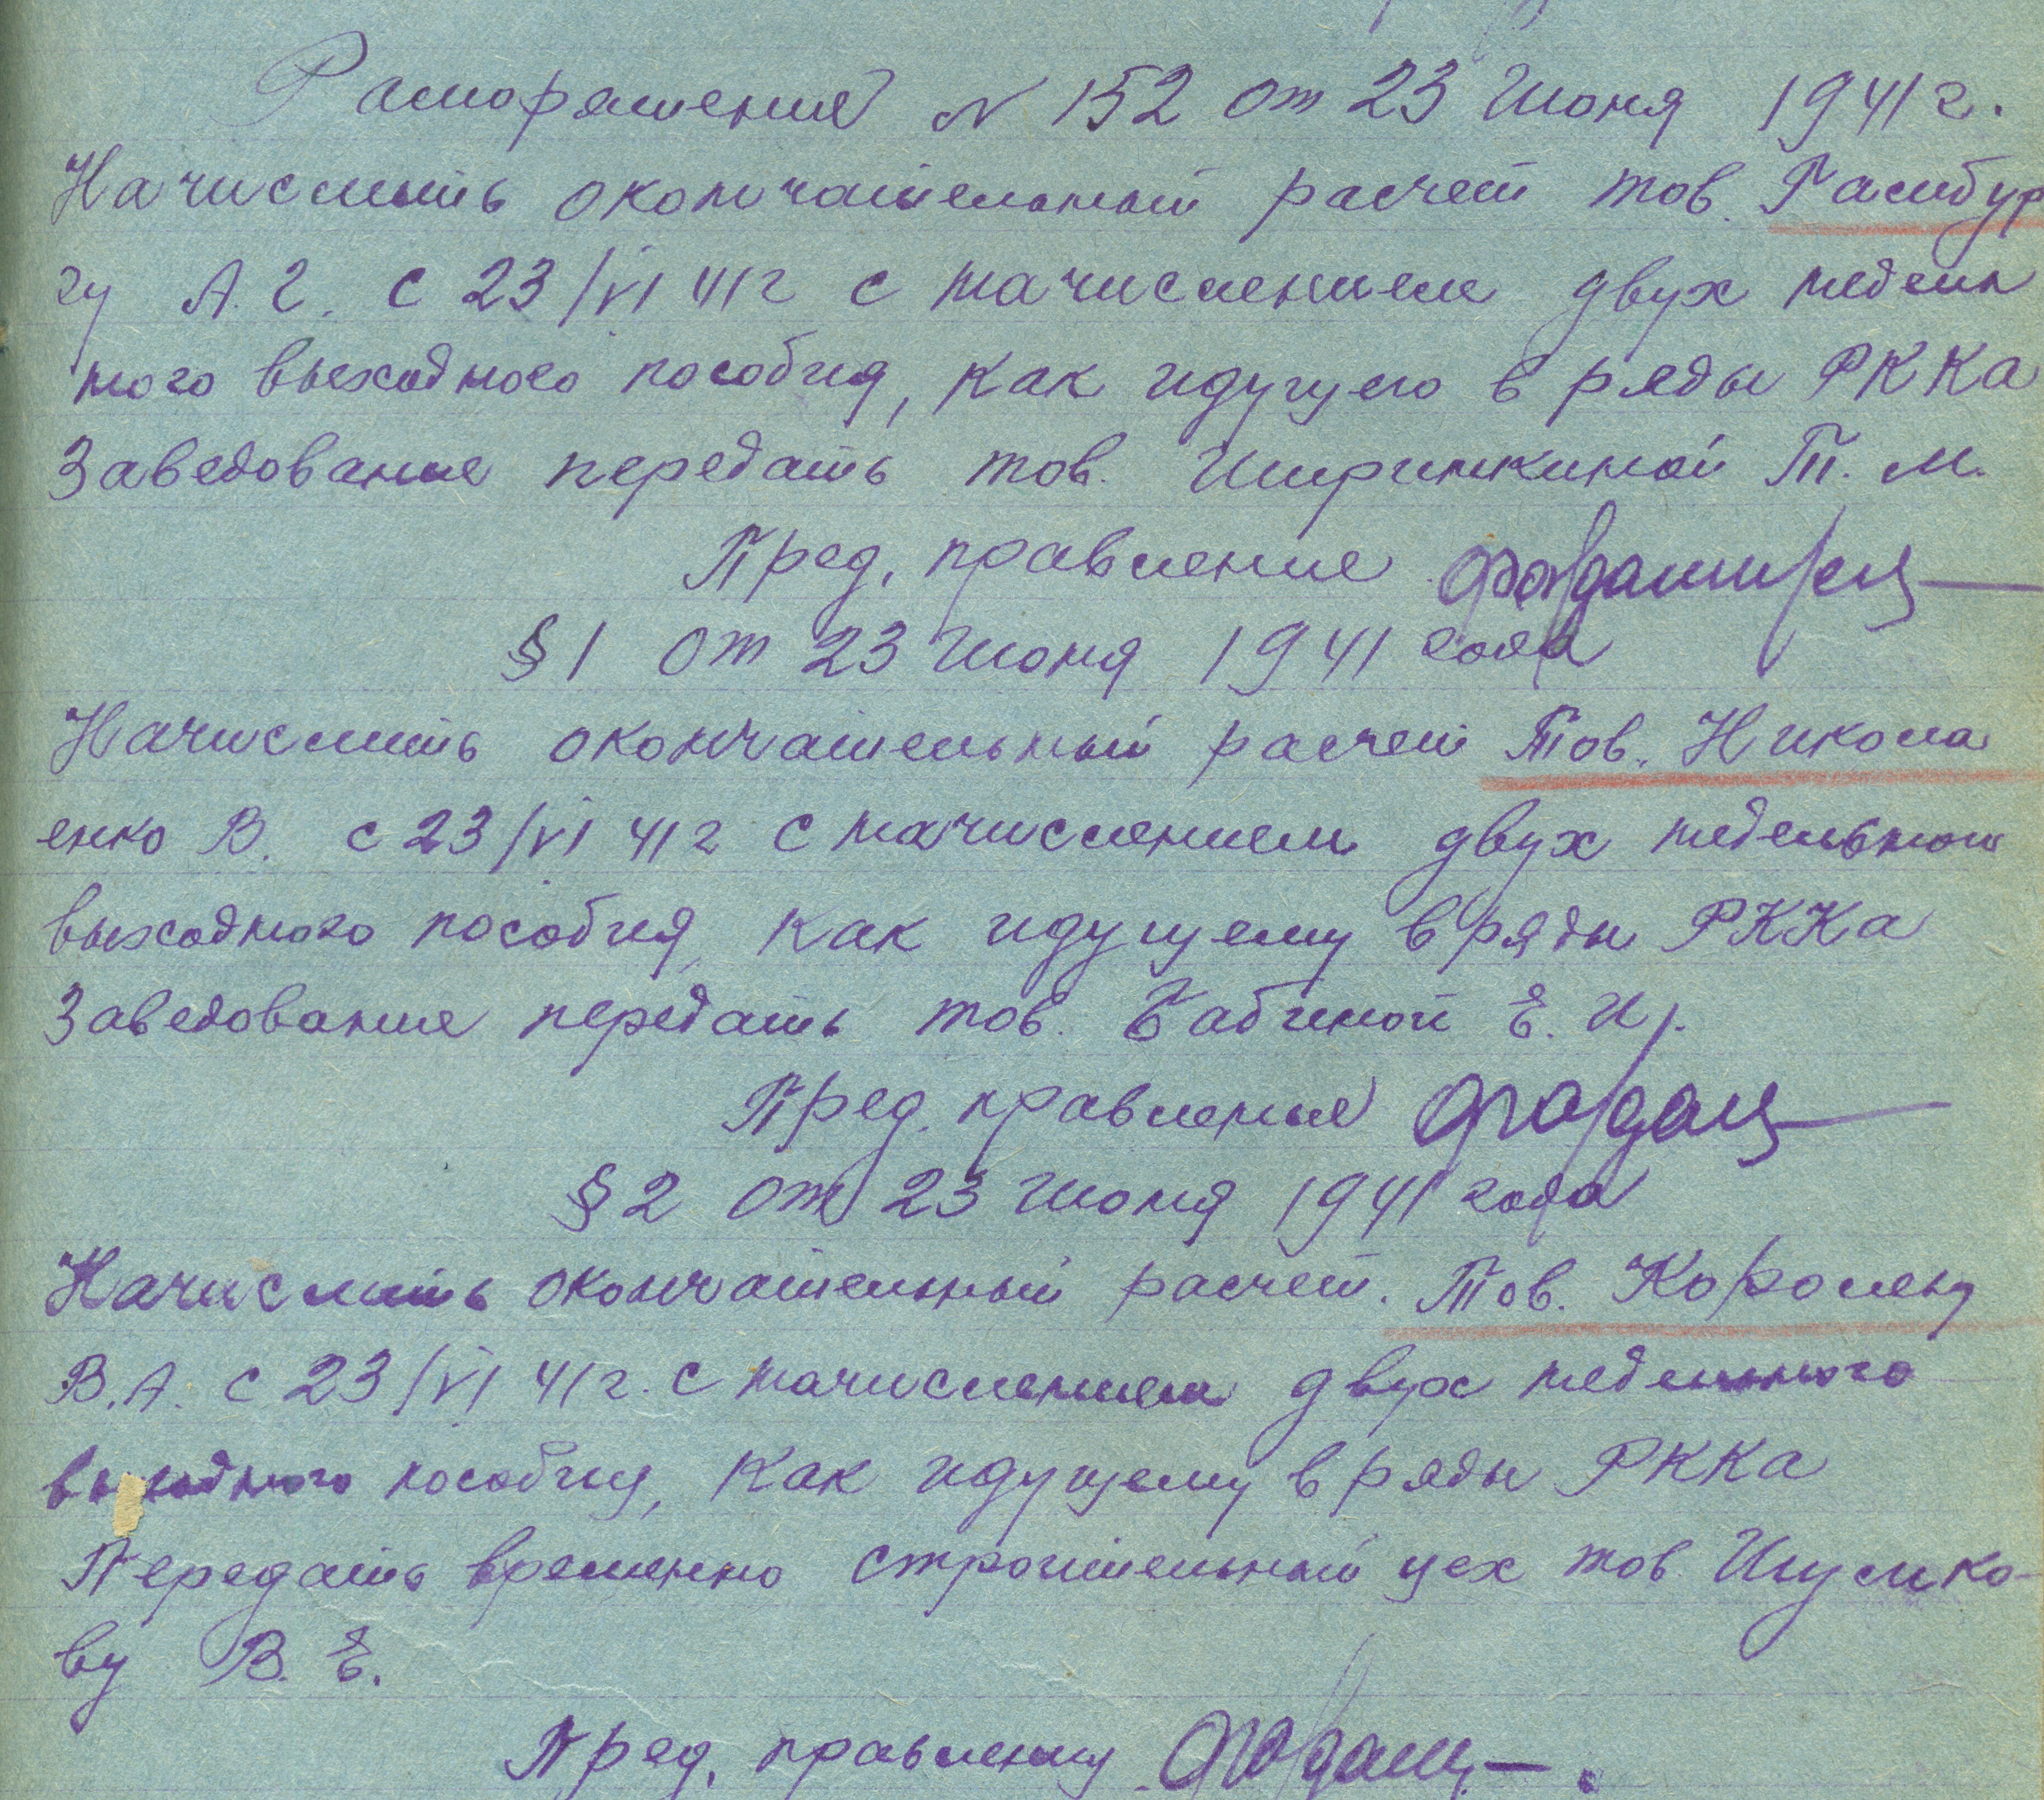 Распоряжение N 152 от 23 Июня 1941 г.
Начислить окончательный расчет тов. Гамбур
гу А. Г. с 23/VI 41 г с начислением двух недель
ного выходного пособия, как идущего в ряды РККа
Заведование передать тов. Ширинкиной Т. М.
Пред. правление
§ 1 от 23 Июня 1941 года
Начислить окончательный расчет Тов. Никола
енко В. с 23/VI 41 г с начислением двух недельного
выходного пособия как идущему в ряды РККа
Заведование передать тов. Бабиной Е. И.
Пред. правления
§ 2 от 23 Июня 1941 года
Начислить окончательный расчет. Тов. Королену
В. А. с 23/VI 41 г. с начислением двух недельного
выходного пособия, как идущему в ряды РККа
Передать временно строительный цех тов. Шумко-
ву В. Е.
Пред. правления